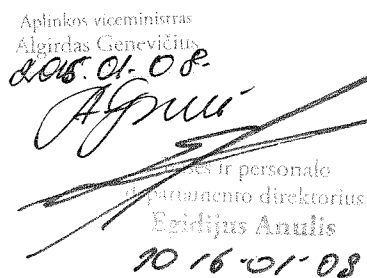 Aplinkos viceministras
Algirdas Genevičius
2015.01.08.
ir personalo
departamento direktorius
Egidijus Anulis
2015-01-08